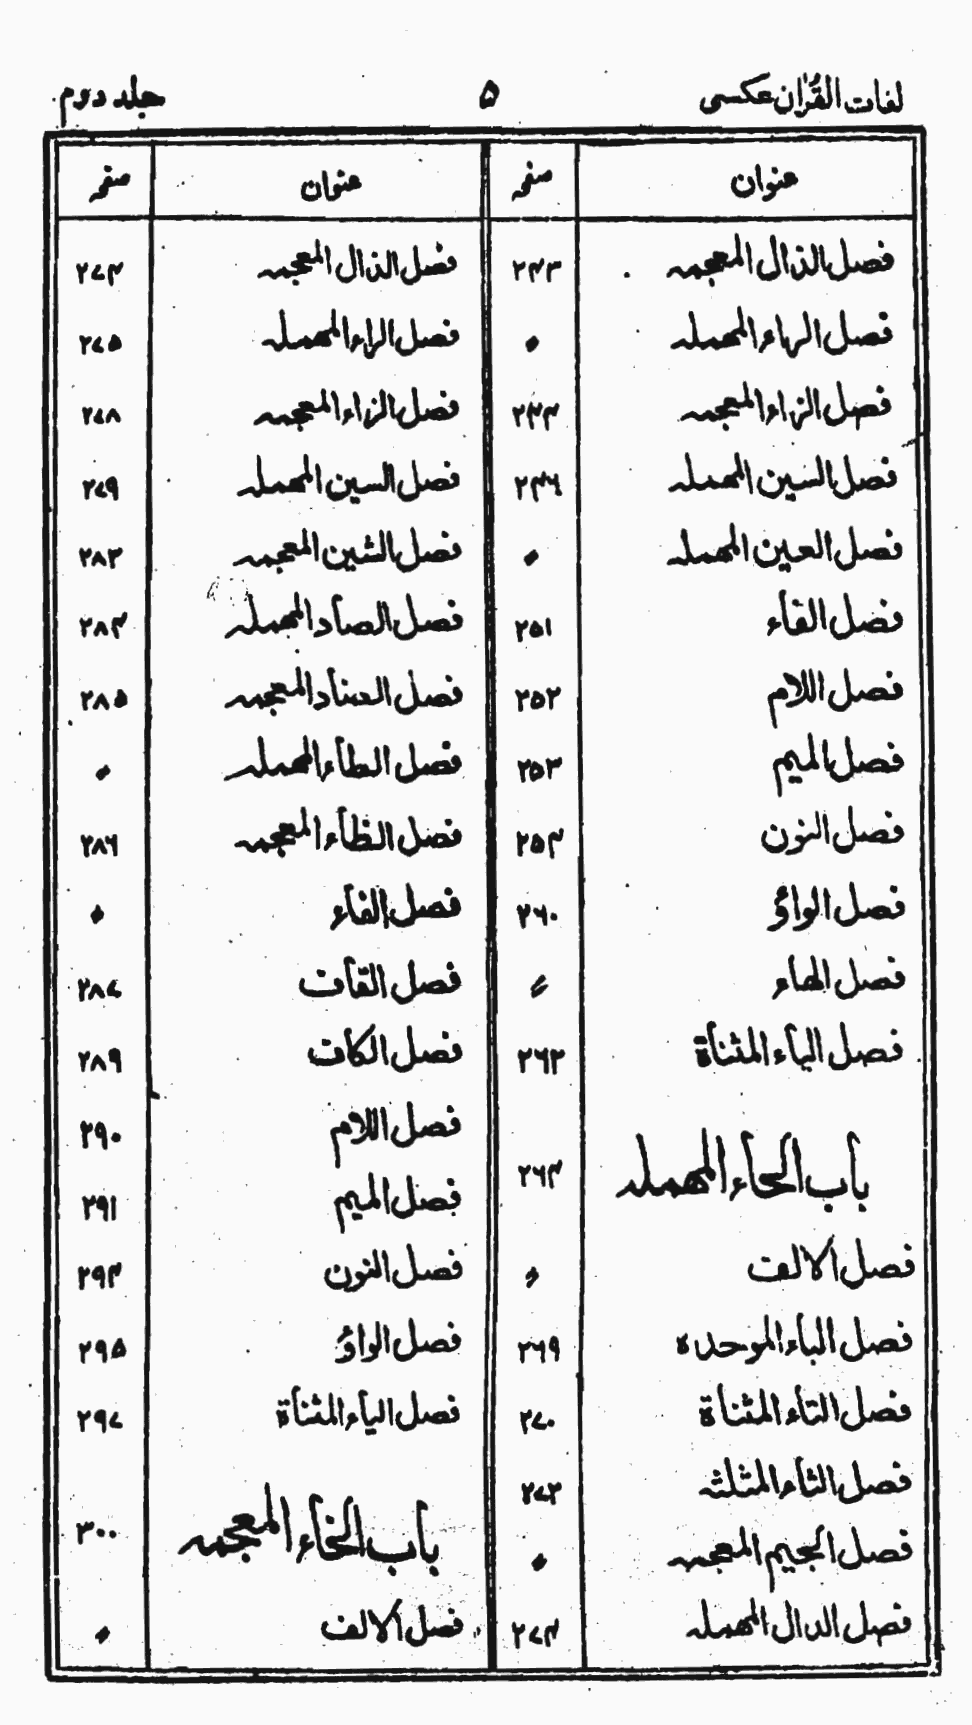 لغات القرآن عکسی ۵ جلد دوم
عنوان صفحہ عنوان صفحہ
فصل الذال المعجمہ ۲۴۳
فصل الراء المهملہ ″
فصل الزاء المعجمہ ۲۴۴
فصل السین المهملہ ۲۴۶
فصل العین المهملہ ″
فصل الفآء ۲۵۱
فصل اللام ۲۵۲
فصل المیم ۲۵۳
فصل النون ۲۵۴
فصل الواؤ ۲۶۰
فصل الهاء ″
فصل الیآء المثناۃ ۲۶۲
بآب الحآء المهملہ ۲۶۴
فصل الالف ″
فصل البآء الموحدہ ۲۶۹
فصل التآء المثناۃ ۲۷۰
فصل الثآء المثلثہ ۲۷۲
فصل الجیم المعجمہ ″
فصل الدال المهملہ ۲۷۴
فصل الذال المعجمہ ۲۷۴
فصل الراء المهملہ ۲۷۵
فصل الزاء المعجمہ ۲۷۸
فصل السین المهملہ ۲۷۹
فصل الشین المعجمہ ۲۸۳
فصل الصآد المهملہ ۲۸۴
فصل الضآد المعجمہ ۲۸۵
فصل الطآء المهملہ ″
فصل الظآء المعجمہ ۲۸۶
فصل الفاء ″
فصل القآف ۲۸۷
فصل الکاف ۲۸۹
فصل اللام ۲۹۰
فصل المیم ۲۹۱
فصل النون ۲۹۴
فصل الواؤ ۲۹۵
فصل الیآء المثناۃ ۲۹۷
بآب الخآء المعجمہ ۳۰۰
فصل الالف ″